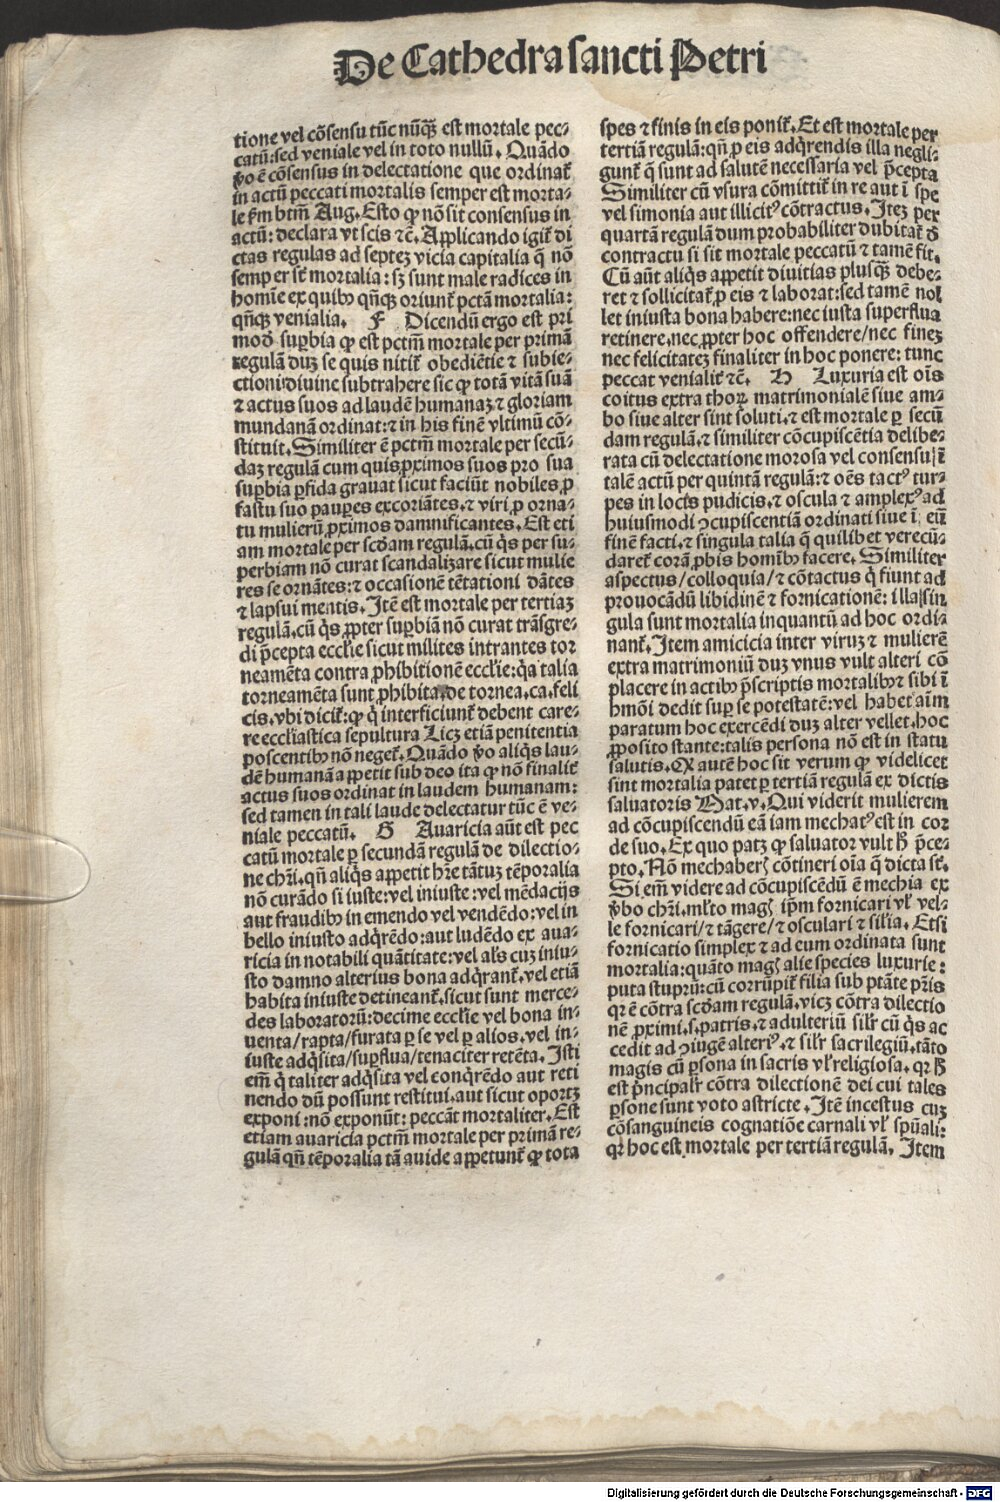 De Cathedra sancti Petri
tione vel cõsensu tũc nũq̃ȝ est mortale pec⸗
catũ:sed veniale vel in toto nullũ. Quãdo
ṽo ẽ cõsensus in delectatione que ordinat᷑
in actũ peccati mortalis semper est morta⸗
le ẜm btm̃ Aug. Esto ꝙ nõ sit consensus in
actũ: declara vt scis ⁊c̃. Applicando igit᷑ di
ctas regulas ad septeȝ vicia capitalia q̃ nõ
semper st̃ mortalia: sȝ sunt male radices in
homĩe ex quibꝰ qñqȝ oriunt᷑ pctã mortalia:
qñqȝ venialia. F Dicendũ ergo est pri
moð suꝑbia ꝙ est pctm̃ mortale per primã
regulã duȝ se quis nitit᷑ obediẽtie ⁊ subie⸗
ctioni diuine subtrahere sic ꝙ totã vitã suã
⁊ actus suos ad laudẽ humanaȝ ⁊ gloriam
mundanã ordinat:⁊ in his finẽ vltimũ cõ⸗
stituit. Similiter ẽ pctm̃ mortale per secũ⸗
daȝ regulã cum quis ꝓximos suos pro sua
suꝑbia ꝑfida grauat sicut faciũt nobiles ꝓ
fastu suo pauꝑes excoriãtes.⁊ viri ꝓ orna⸗
tu mulierũ ꝓximos damnificantes. Est eti
am mortale per scďam regulã.cũ q̇s per su⸗
perbiam nõ curat scandalizare sicut mulie
res se ornãtes:⁊ occasionẽ tẽtationi dãtes
⁊ lapsui mentis. Itẽ est mortale per tertiaȝ
regulã.cũ q̇s ꝓpter suꝑbiã nõ curat trãsgre⸗
di p̃cepta eccl̃ie sicut milites intrantes tor
neamẽta contra ꝓhibitionẽ eccl̃ie:q̃a talia
torneamẽta sunt ꝓhibita.de tornea.ca.feli
cis.vbi dicit᷑:ꝙ q̇ interficiunt᷑ debent care⸗
re eccl̃iastica sepultura Licȝ etiã penitentia
poscentibꝰ nõ neget᷑. Quãdo ṽo aliq̇s lau⸗
dẽ humanã appetit sub deo ita ꝙ nõ finalit᷑
actus suos ordinat in laudem humanam:
sed tamen in tali laude delectatur tũc ẽ ve⸗
niale peccatũ. G Auaricia aũt est pec
catũ mortale ꝑ secundã regulã de dilectio⸗
ne chr̃i.qñ aliq̇s appetit hr̃e tãtuȝ tẽporalia
nõ curãdo si iuste:vel iniuste:vel mẽdacijs
aut fraudibꝰ in emendo vel vendẽdo:vel in
bello iniusto adq̇rẽdo:aut ludẽdo ex aua⸗
ricia in notabili quãtitate:vel al̃s cuȝ iniu⸗
sto damno alterius bona adq̇rant᷑.vel etiã
habita iniuste detineant᷑.sicut sunt merce⸗
des laboratorũ:decime eccl̃ie vel bona in⸗
uenta/rapta/furata ꝑ se vel ꝑ alios.vel in⸗
iuste adq̇sita/suꝑflua/tenaciter retẽta. Isti
em̃ q̇ taliter adq̇sita vel conq̇rẽdo aut reti
nendo dũ possunt restitui.aut sicut oportȝ
exponi:nõ exponũt: peccãt mortaliter. Est
etiam auaricia pctm̃ mortale per primã re⸗
gulã qñ tẽporalia tã auide appetunt᷑ ꝙ tota
spes ⁊ finis in eis ponit᷑. Et est mortale per
tertiã regulã: qñ ꝓ eis adq̇rendis illa negli⸗
gunt᷑ q̃ sunt ad salutẽ necessaria vel p̃cepta
Similiter cũ vsura cõmittit᷑ in re aut ĩ spe
vel simonia aut illicitꝰ cõtractus. Iteȝ per
quartã regulã dum probabiliter dubitat᷑ ð
contractu si sit mortale peccatũ ⁊ tamẽ fit.
Cũ aũt aliq̇s appetit diuitias plusq̃ȝ debe⸗
ret ⁊ sollicitat᷑ ꝓ eis ⁊ laborat:sed tamẽ nol
let iniusta bona habere:nec iusta superflua
retinere.nec ꝓpter hoc offendere/nec fineȝ
nec felicitateȝ finaliter in hoc ponere: tunc
peccat venialit᷑ ⁊c̃. H Luxuria est oĩs
coitus extra thoꝝ matrimonialẽ siue am⸗
bo siue alter sint soluti.⁊ est mortale ꝑ secũ
dam regulã.⁊ similiter cõcupiscẽtia delibe⸗
rata cũ delectatione morosa vel consensu ĩ
talẽ actũ per quintã regulã:⁊ oẽs tactꝰ tur⸗
pes in locis pudicis.⁊ oscula ⁊ amplexꝰ ad
huiusmodi ꝯcupiscentiã ordinati siue ĩ eũ
finẽ facti.⁊ singula talia q̃ quilibet verecũ⸗
daret᷑ corã ꝓbis homĩbꝰ facere. Similiter
aspectus/colloquia/⁊ cõtactus q̇ fiunt ad
prouocãdũ libidinẽ ⁊ fornicationẽ: illa sin
gula sunt mortalia inquantũ ad hoc ordi⸗
nant᷑. Item amicicia inter viruȝ ⁊ mulierẽ
extra matrimoniũ duȝ vnus vult alteri cõ
placere in actibꝰ p̃scriptis mortalibꝰ ⁊ sibi ĩ
hmõi dedit suꝑ se potestatẽ:vel habet aĩm
paratum hoc exercẽdi duȝ alter vellet.hoc
ꝓposito stante:talis persona nõ est in statu
salutis. Q autẽ hoc sit verum ꝙ videlicet
sint mortalia patet ꝑ tertiã regulã ex dictis
saluatoris Mat.v. Qui viderit mulierem
ad cõcupiscendũ eã iam mechatꝰ est in cor
de suo. Ex quo patȝ ꝙ saluator vult ħ p̃ce⸗
pto. Nõ mechaberꝭ cõtineri oĩa q̃ dicta st̃.
Si em̃ videre ad cõcupiscẽdũ ẽ mechia ex
ṽbo chr̃i.ml̃to magꝭ ip̃m fornicari vl̃ vel⸗
le fornicari/⁊ tãgere/⁊ osculari ⁊ sil̃ia. Etsi
fornicatio simplex ⁊ ad eum ordinata sunt
mortalia:quãto magꝭ alie species luxurie:
puta stuprũ:cũ corrũpit᷑ filia sub ptãte pr̃is
qr ẽ cõtra scďam regulã.vicȝ cõtra dilectio
nẽ ꝓximi.s.patris.⁊ adulteriũ sil̃r cũ q̇s ac
cedit ad ꝯiugẽ alteriꝰ.⁊ sil̃r sacrilegiũ.tãto
magis cũ ꝑsona in sacris vl̃ religiosa. qr ħ
est p̃ncipal̃r cõtra dilectionẽ dei cui tales
ꝑsone sunt voto astricte. Itẽ incestus cuȝ
cõsanguineis cognatiõe carnali vl̃ spũali:
qr hoc est mortale per tertiã regulã. Item
Digitalisierung gefördert durch die Deutsche Forschungsgemeinschaft - DFG